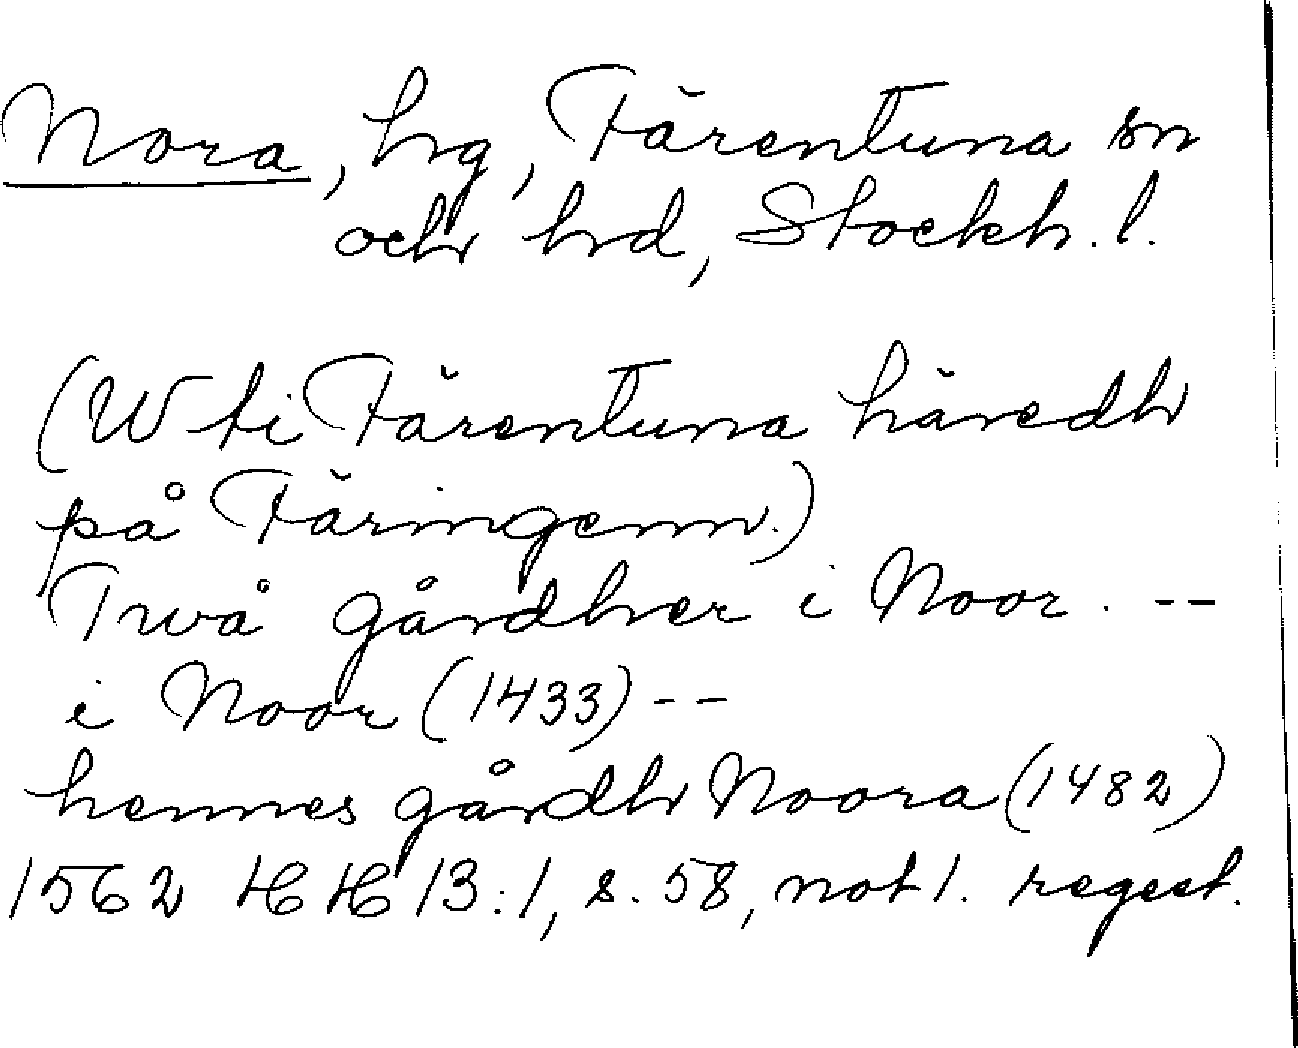 Nora, hg, Färentuna sn
och hd, Stockh. l.
(Wti Färentuna häredh
på Färingenn.)
Twå gårdher i Noor. --
i Noor (1433) --
hennes gårdh Noora (1482)
1562 HH 13:1, s. 58, not 1. regest.